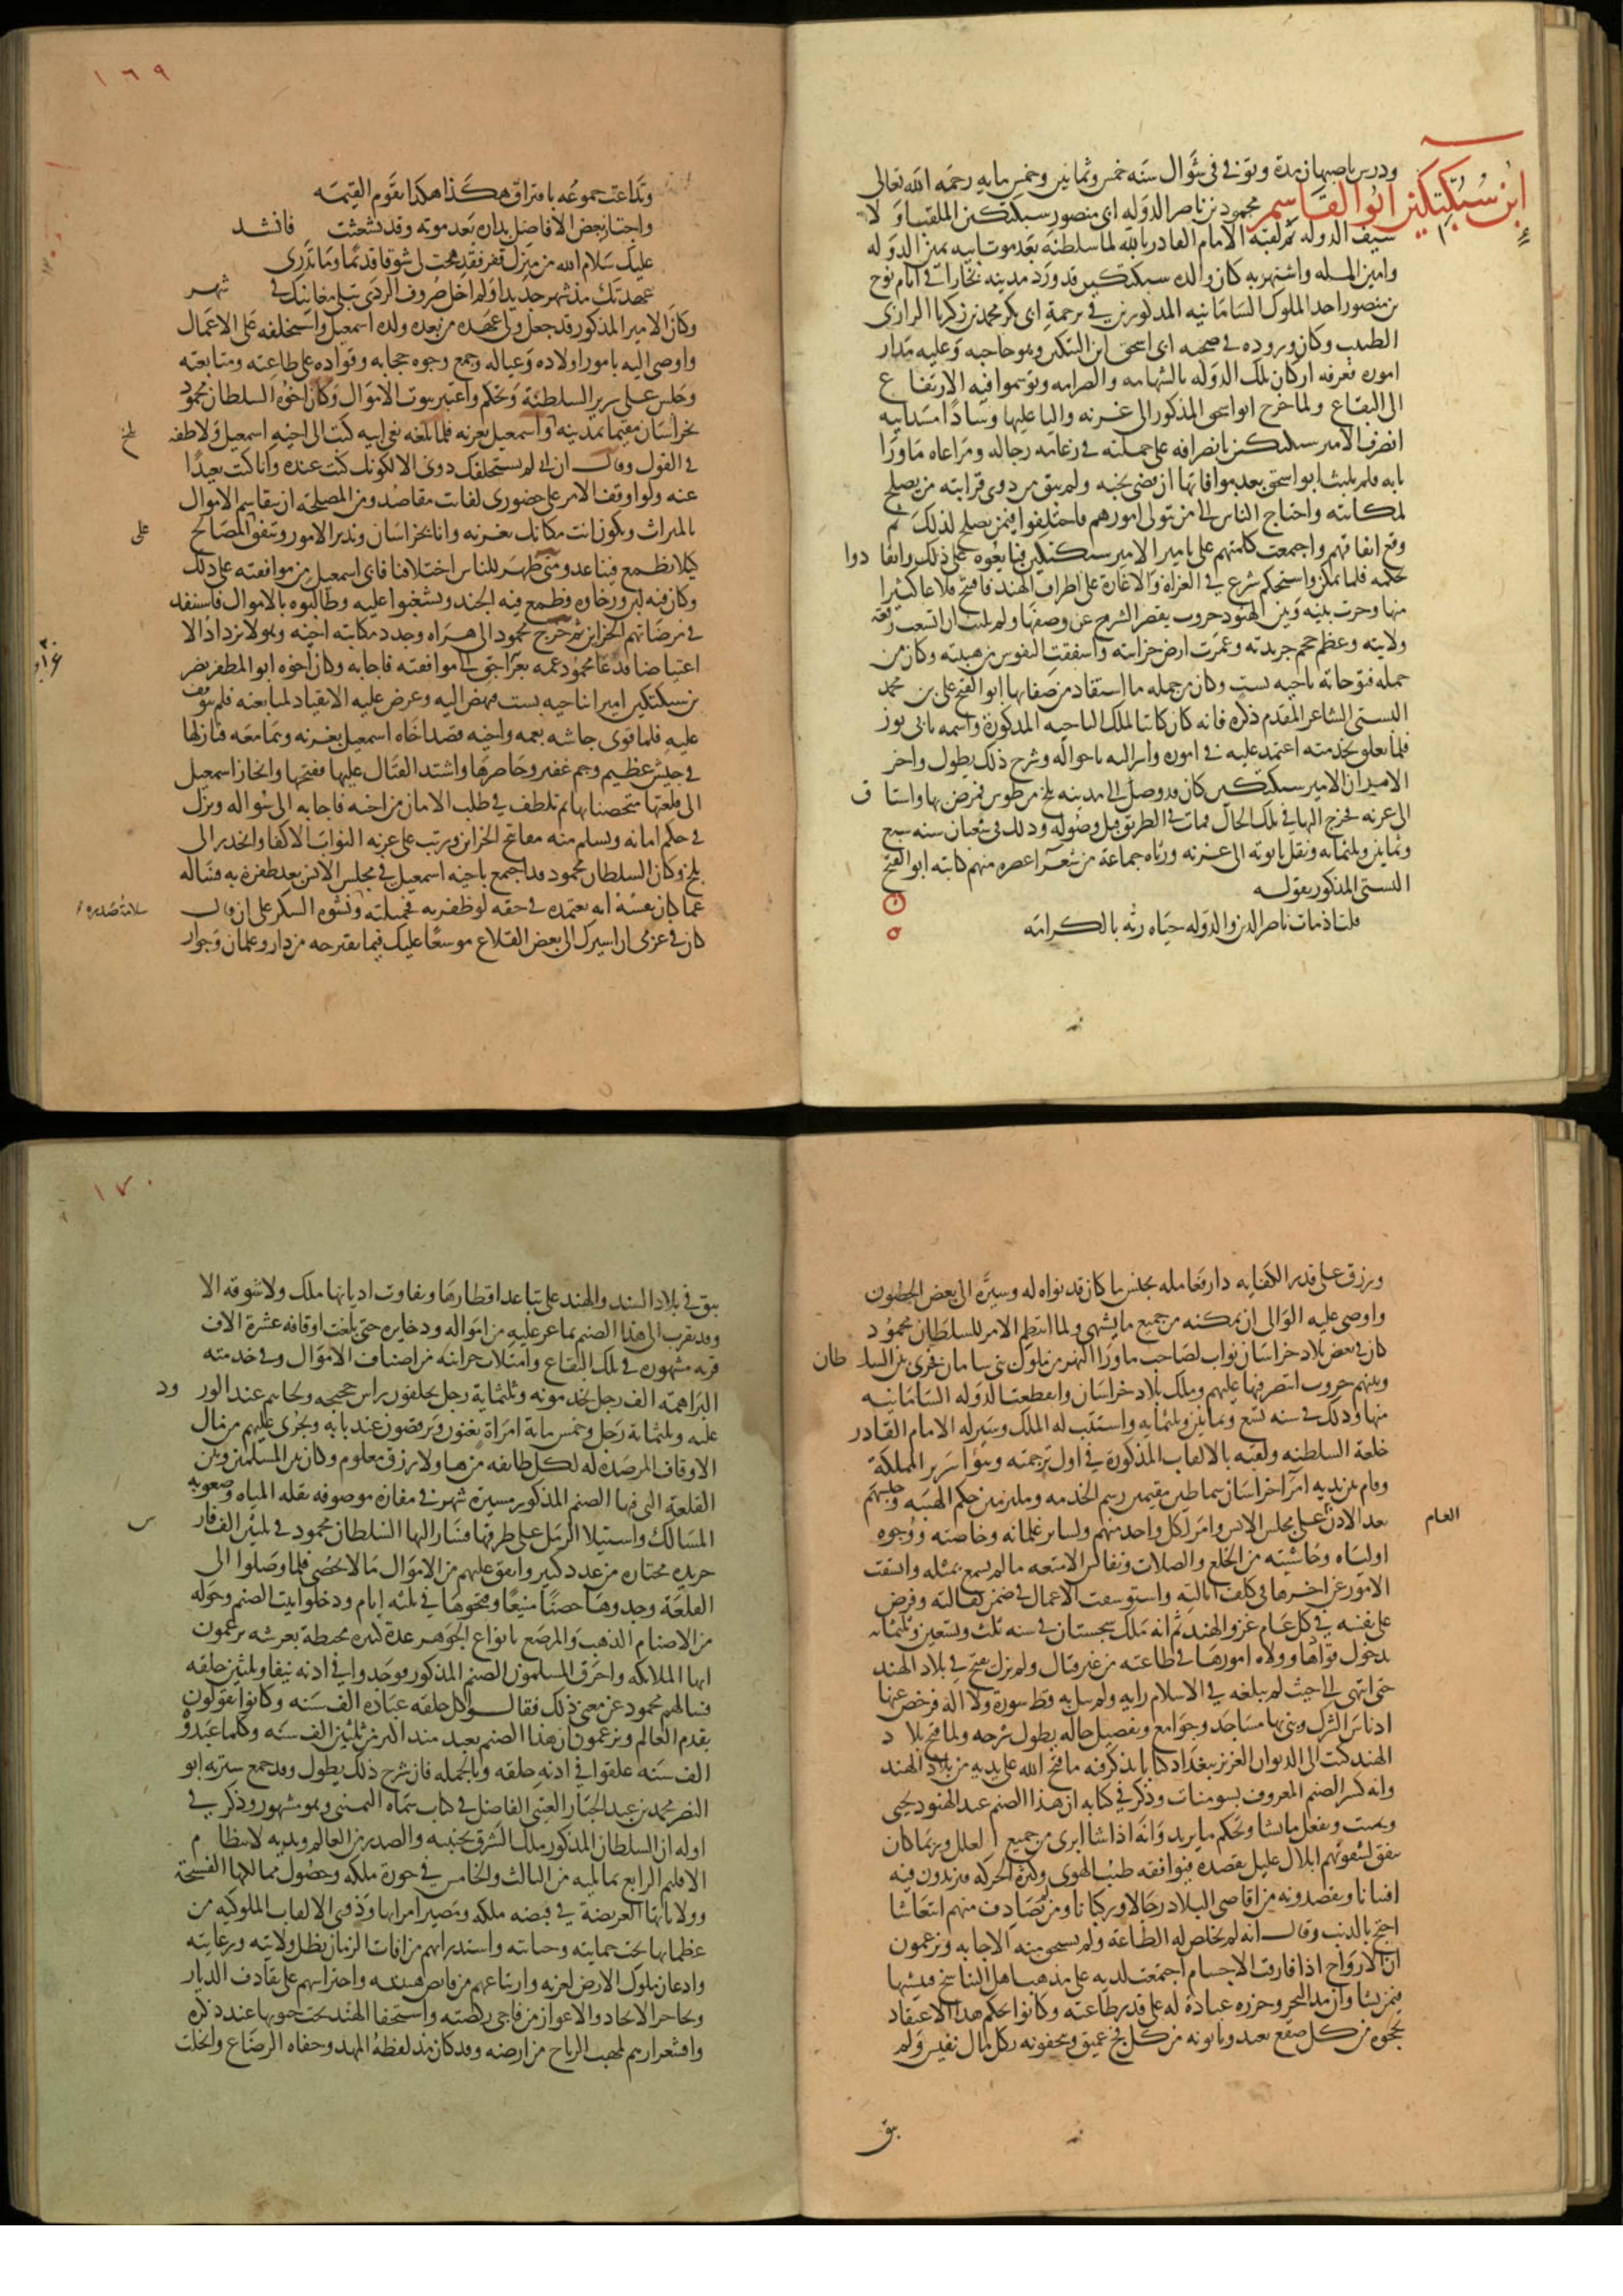 ودرس باصبهان مدة وتوفى فى شوال سنه خمس وثمانين وخمس مايه رحمه الله تعالى
ابن سبكتكين ابو القاسم محمود بن ناصر الدوله ابى منصور سبكتكين الملقب اولا
سيف الدوله ثم لقبه الامام القادر بالله لما سلطنه بعد موت ابيه يمين الدوله
وامين المله واشتهر به كان والده سبكتكين قد ورد مدينه بخارا فى ايام نوح
بن منصور احد الملوك السامانيه المذكورين فى ترجمة ابى بكر محمد بن زكريا الرازى
الطبيب وكان وروده فى صحبه ابى اسحق ابن البتكين وهو حاجبه وعليه مدار
اموره فعرفه اركان تلك الدوله بالشهامه والصرامه وتوسموا فيه الارتفاع
الى البقاع ولما خرج ابو اسحق المذكور الى غزنه واليا عليها وسادا مسد ابيه
انصرف الامير سبكتكين بانصرافه على جملته فى زعامه رجاله ومراعاه ما ورا
بابه فلم يلبث ابو اسحق بعد موافاتها ان قضى نحبه ولم يبق من ذوى قرابته من يصلح
لمكانته واحتاج الناس الى من يتولى امورهم فاختلفوا فيمن يصلح لذلك ثم
وقع اتفاقهم واجمعت كلمتهم على تامير الامير سبكتكين فبايعوه على ذلك وانقادوا
لحكمه فلما تمكن واستحكم شرع فى الغزاة والاغارة على اطراف الهند فافتتح قلاعا كثيرا
منها وجرت بينه وبين الهنود حروب يقصر الشرح عن وصفها ولم يلبث ان اتسعت رقعة
ولايته وعظم حجم جريدته وعمرت ارض خزانته واشفقت النفوس من هيبته وكان من
جمله فتوحاته ناحيه بست وكان من جمله ما استفاد من صفاياها ابو الفتح على بن محمد
البستى الشاعر المقدم ذكره فانه كان كاتبا لملك الناحيه المذكورة واسمه باى توز
فلما تعلق بخدمته اعتمد عليه فى اموره واسر اليه باحواله وشرح ذلك يطول واخر
الامير ان الامير سبكتكين كان قد وصل الى مدينه بلخ من طوس فمرض بها واشتاق
الى غزنه فخرج اليها فى تلك الحال فمات فى الطريق قبل وصوله وذلك فى شعبان سنه سبع
وثمانين وثلثمايه ونقل تابوته الى غزنه ورثاه جماعة من شعرآ عصره منهم كاتبه ابو الفتح
البستى المذكور بقوله
قلت اذ مات ناصر الدين والدوله حياه ربه بالكرامه
١٦٩
وتداعت جموعه بافتراق هكذا هكذا تقوم القيمه
واجتاز بعض الافاضل بداره بعد موته وقد تشعثت فانشد
عليك سلام الله من منزل قفر فقد هجت لى شوقا قديما وما تدرى
عهدتك مذ شهر جديدا ولم اخل صروف الردى تبلى مغانيك فى شهر
وكان الامير المذكور قد جعل ولى عهده من بعده ولده اسمعيل واستخلفه على الاعمال
واوصى اليه بامور اولاده وعياله وجمع وجوه حجابه وقواده على طاعته ومتابعته
وجلس على سرير السلطنة وتحكم واعتبر بيوت الاموال وكان اخوه السلطان محمود
بخراسان مقيما بمدينه بلخ واسمعيل بغزنه فلما بلغه نعى ابيه كتب الى اخيه اسمعيل ولاطفه
فى القول وقال ان ابى لم يستخلفك دونى الا لكونك كنت عنده وانا كنت بعيدا
عنه ولو اوقف الامر على حضورى لفاتت مقاصده ومن المصلحة ان نتقاسم الاموال
بالميراث وتكون انت مكانك بغزنه وانا بخراسان وندبر الامور ونتفق على المصالح
كيلا يطمع فينا عدو ومتى ظهر للناس اختلافنا فابى اسمعيل من موافقته على ذلك
وكان فيه لين ورخاوه فطمع فيه الجند وشغبوا عليه وطالبوه بالاموال فاستنفد
فى مرضاتهم الخزاين ثم خرج محمود الى هراه وجدد مكاتبة اخيه وهو لا يزداد الا
اعتياصا فدعا محمود عمه بغراجق الى موافقته فاجابه وكان اخوه ابو المظفر نصر
بن سبكتكين اميرا بناحيه بست فنهض اليه وعرض عليه الانقياد لمتابعته فلم يتوقف
عليه فلما قوى جاشه بعمه واخيه قصد اخاه اسمعيل بغزنه وهما معه فنازلها
فى جيش عظيم وجم غفير وحاصرها واشتد القتال عليها ففتحها وانحاز اسمعيل
الى قلعتها متحصنا بها ثم تلطف فى طلب الامان من اخيه فاجابه الى سواله ونزل
فى حكم امانه وتسلم منه مفاتيح الخزاين ورتب على غزنه النواب الاكفا وانحدر الى
بلخ وكان السلطان محمود قد اجتمع باخيه اسمعيل فى مجلس الانس بعد ظفره به فساله
عما كان فى نفسه انه يعتمده فى حقه لو ظفر به فحملته سلامة صدره ونشوه السكر على ان قال
كان فى عزمى ان اسيرك الى بعض القلاع موسعا عليك فيما تقترحه من دار وغلمان وجوار
ورزق على قدر الكفايه دار فعامله بجنس ما كان قد نواه له وسيره الى بعض الحصون
واوصى عليه الوالى ان يمكنه من جميع ما يشتهى ولما انتظم الامر للسلطان محمود
كان فى بعض بلاد خراسان نواب لصاحب ماورا النهر من ملوك بنى سامان فجرى بين السلطان
وبينهم حروب انتصر فيها عليهم وملك بلاد خراسان وانقطعت الدوله السامانيه
منها وذلك فى سنه تسع وثمانين وثلثمايه واستتب له الملك وسير له الامام القادر
خلعة السلطنه ولقبه بالالقاب المذكورة فى اول ترجمته وتبوأ سرير المملكة
وقام بين يديه امرآ خراسان سماطين مقيمين برسم الخدمه وملتزمين حكم الهيبه وجلسهم
بعد الاذن العام على مجلس الانس وامر لكل واحد منهم ولساير غلمانه وخاصته ووجوه
اوليآه وحاشيته من الخلع والصلات ونفايس الامتعه ما لم يسمع بمثله واتسقت
الامور عن اخرها فى كنف ايالته واستوسقت الاعمال فى ضمن كفالته وفرض
على نفسه فى كل عام غزو الهند ثم انه ملك سجستان فى سنه ثلث وتسعين وثلثمايه
بدخول قوادها وولاه امورها فى طاعته من غير قتال ولم يزل يفتح فى بلاد الهند
حتى انتهى الى حيث لم يبلغه فى الاسلام رايه ولم تتل به قط سورة ولا ايه فرحض عنها
ادناس الشرك وبنى بها مساجد وجوامع وتفصيل حاله يطول شرحه ولما فتح بلاد
الهند كتب الى الديوان العزيز ببغداد كتابا يذكر فيه ما فتح الله على يديه من بلاد الهند
وانه كسر الصنم المعروف بسومنات وذكر فى كتابه ان هذا الصنم عند الهنود يحيى
ويميت ويفعل ما يشا ويحكم ما يريد وانه اذا شا ابرى من جميع العلل وربما كان
يتفق لشقوتهم ابلال عليل يقصده فيوافقه طيب الهوى وكثرة الحركه فيزيدون فيه
افتتانا ويقصدونه من اقاصى البلاد رجالا وركبانا ومن لم يصادف منهم انتعاشا
احتج بالذنب وقال انه لم يخلص له الطاعة ولم يستحق منه الاجابه ويزعمون
ان الارواح اذا فارقت الاجسام اجتمعت لديه على مذهب اهل التناسخ فينشيها
فيمن يشا وان مد البحر وجزره عبادة له على قدر طاعته وكانوا بحكم هذا الاعتقاد
يحجوه من كل صقع بعيد وياتونه من كل فج عميق ويتحفونه بكل مال نفيس ولم
يبق
١٧٠
يبق فى بلاد السند والهند على تباعد اقطارها وتفاوت اديانها ملك ولا سوقه الا
وقد تقرب الى هذا الصنم بما عز عليه من امواله وذخايره حتى بلغت اوقافه عشرة الاف
قريه مشهوره فى تلك البقاع وامتلات خزانته من اصناف الاموال وفى خدمته
البراهمة الف رجل يخدمونه وثلثماية رجل يحلقون راس حجيجه ولحاهم عند الورود
عليه وثلثماية رجل وخمس ماية امراة يغنون ويرقصون عند بابه ويجرى عليهم من مال
الاوقاف المرصدة له لكل طايفه من هاولا رزق معلوم وكان بين المسلمين وبين
القلعة التى فيها الصنم المذكور مسيرة شهر فى مفازة موصوفه بقلة المياه وصعوبه
المسالك واستيلا الرمل على طرقها فسار اليها السلطان محمود فى ثلثين الف فارس
جريده مختاره من عدد كبير وانفق عليهم من الاموال ما لا يحصى فلما وصلوا الى
القلعة وجدوها حصنا منيعا وفتحوها فى ثلثه ايام ودخلوا بيت الصنم وحوله
من الاصنام الذهب والمرصع بانواع الجوهر عدة كثيره محيطة بعرشه يزعمون
انها الملايكه واحرق المسلمون الصنم المذكور فوجدوا فى اذنه نيفا وثلثين حلقه
فسالهم محمود عن معنى ذلك فقالوا كل حلقه عبادة الف سنه وكانوا يقولون
بقدم العالم ويزعمون ان هذا الصنم يعبد منذ اكثر من ثلثين الف سنه وكلما عبدوه
الف سنه علقوا فى اذنه حلقه وبالجمله فان شرح ذلك يطول وقد جمع سيرته ابو
النصر محمد بن عبد الجبار العتبى الفاضل فى كتاب سماه اليمينى وهو مشهور وذكر فى
اوله ان السلطان المذكور ملك الشرق بجنبيه والصدر من العالم ويديه لانتظام
الاقليم الرابع بما يليه من الثالث والخامس فى حوزة ملكه وحصول ممالكها الفسيحة
وولاياتها العريضة فى قبضه ملكه ومصير امرايها وذوى الالقاب الملوكيه من
عظمايها تحت حمايته وجبايته واستدرايهم من افات الزمان بظل ولايته ورعايته
واذعان ملوك الارض لعزته وارتياعهم من فايض هيبته واحتراسهم على تقاذف الديار
وتحاجز الانجاد والاغوار من فاجى ركضته واستخفا الهند تحت جيوبها عند ذكره
واقشعرارهم لمهب الرياح من ارضه وقد كان مذ لفظه المهد وجفاه الرضاع وانحلت